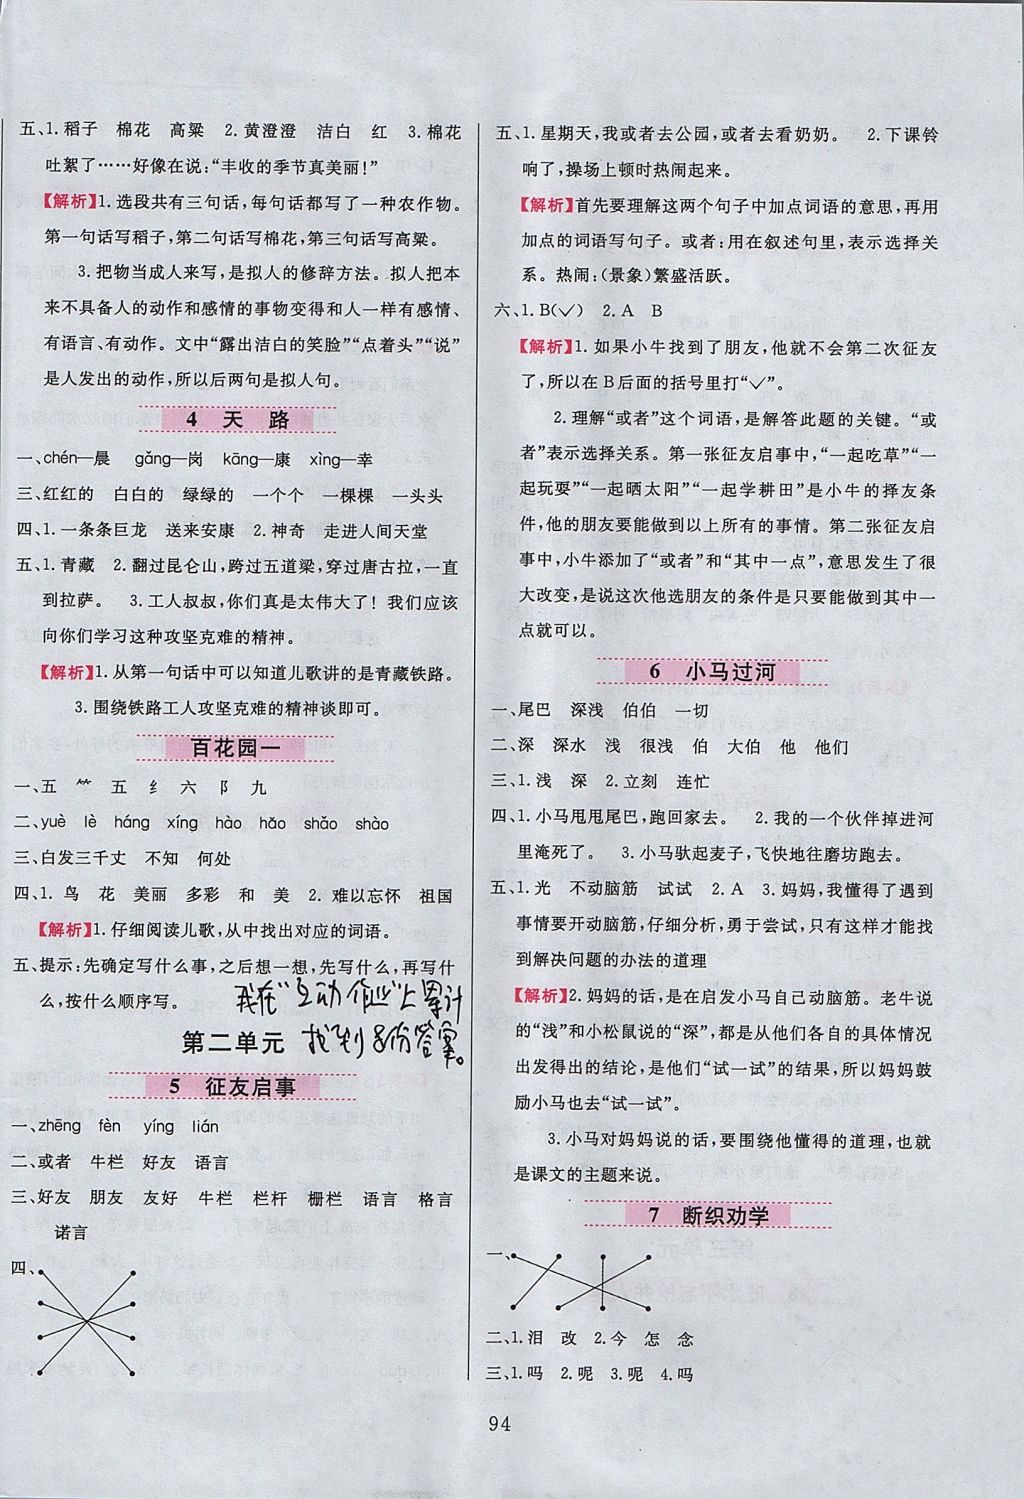 五、1.稻子 棉花 高粱 2.黄澄澄 洁白 红 3.棉花
吐絮了……好像在说:“丰收的季节真美丽!”
【解析】1.选段共有三句话,每句话都写了一种农作物。
第一句话写稻子,第二句话写棉花,第三句话写高粱。
3.把物当成人来写,是拟人的修辞方法。拟人把本
来不具备人的动作和感情的事物变得和人一样有感情、
有语言、有动作。文中“露出洁白的笑脸”“点着头”“说”
是人发出的动作,所以后两句是拟人句。
4 天 路
一、chén—晨 gǎng—岗 kāng—康 xìng—幸
三、红红的 白白的 绿绿的 一个个 一棵棵 一头头
四、1.一条条巨龙 送来安康 2.神奇 走进人间天堂
五、1.青藏 2.翻过昆仑山,跨过五道梁,穿过唐古拉,一直
到拉萨。 3.工人叔叔,你们真是太伟大了! 我们应该
向你们学习这种攻坚克难的精神。
【解析】1.从第一句话中可以知道儿歌讲的是青藏铁路。
3.围绕铁路工人攻坚克难的精神谈即可。
百花园一
一、五 ⺮ 五 纟 六 阝 九
二、yuè lè háng xíng hào hǎo shǎo shào
三、白发三千丈 不知 何处
四、1.鸟 花 美丽 多彩 和 美 2.难以忘怀 祖国
【解析】1.仔细阅读儿歌,从中找出对应的词语。
五、提示:先确定写什么事,之后想一想,先写什么,再写什
么,按什么顺序写。
我在“互动作业”上累计
找到8份答案。
第二单元
5 征友启事
一、zhēng fèn yíng lián
二、或者 牛栏 好友 语言
三、好友 朋友 友好 牛栏 栏杆 栅栏 语言 格言
诺言
四、
五、1.星期天,我或者去公园,或者去看奶奶。 2.下课铃
响了,操场上顿时热闹起来。
【解析】首先要理解这两个句子中加点词语的意思,再用
加点的词语写句子。或者:用在叙述句里,表示选择关
系。热闹:(景象)繁盛活跃。
六、1.B(✓) 2.A B
【解析】1.如果小牛找到了朋友,他就不会第二次征友
了,所以在B后面的括号里打“✓”。
2.理解“或者”这个词语,是解答此题的关键。“或
者”表示选择关系。第一张征友启事中,“一起吃草”“一
起玩耍”“一起晒太阳”“一起学耕田”是小牛的择友条
件,他的朋友要能做到以上所有的事情。第二张征友启
事中,小牛添加了“或者”和“其中一点”,意思发生了很
大改变,是说这次他选朋友的条件是只要能做到其中一
点就可以。
6 小马过河
一、尾巴 深浅 伯伯 一切
二、深 深水 浅 很浅 伯 大伯 他 他们
三、1.浅 深 2.立刻 连忙
四、1.小马甩甩尾巴,跑回家去。 2.我的一个伙伴掉进河
里淹死了。 3.小马驮起麦子,飞快地往磨坊跑去。
五、1.光 不动脑筋 试试 2.A 3.妈妈,我懂得了遇到
事情要开动脑筋,仔细分析,勇于尝试,只有这样才能找
到解决问题的办法的道理
【解析】2.妈妈的话,是在启发小马自己动脑筋。老牛
说的“浅”和小松鼠说的“深”,都是从各自的具体情况
出发得出的结论,是他们“试一试”的结果,所以妈妈鼓
励小马也去“试一试”。
3.小马对妈妈说的话,要围绕他懂得的道理,也就
是课文的主题来说。
7 断织劝学
一、
二、1.泪 改 2.今 怎 念
三、1.吗 2.呢 3.呢 4.吗
94